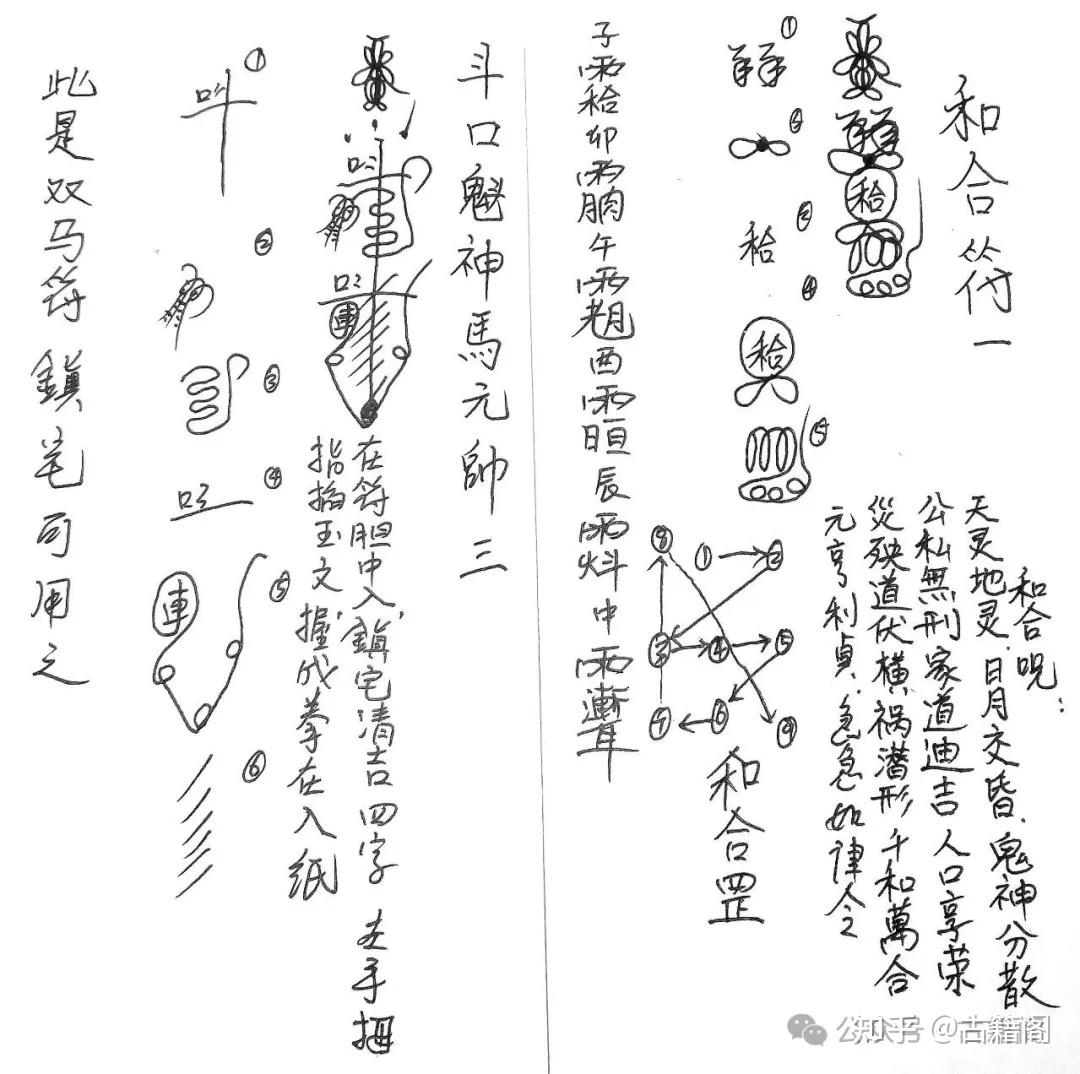 和合符一
和合呪：
天灵地灵.日月交皆.鬼神分散
公私無刑家道迪吉人口享荣
災殃道伏横祸潜形千和萬合
元亨利貞.急急如律令
①
②
③
④
⑤
①②
③④⑤
⑥⑦
⑧⑨
和合罡
子 卯 午 酉 辰 中
斗口魁神馬元帥三
在符胆中入鎮宅清吉四字 左手
指掐玉文握成拳在入紙
①
②
③
④
⑤
連
⑥
此是双马符鎮宅可用之
知乎 @古籍阁